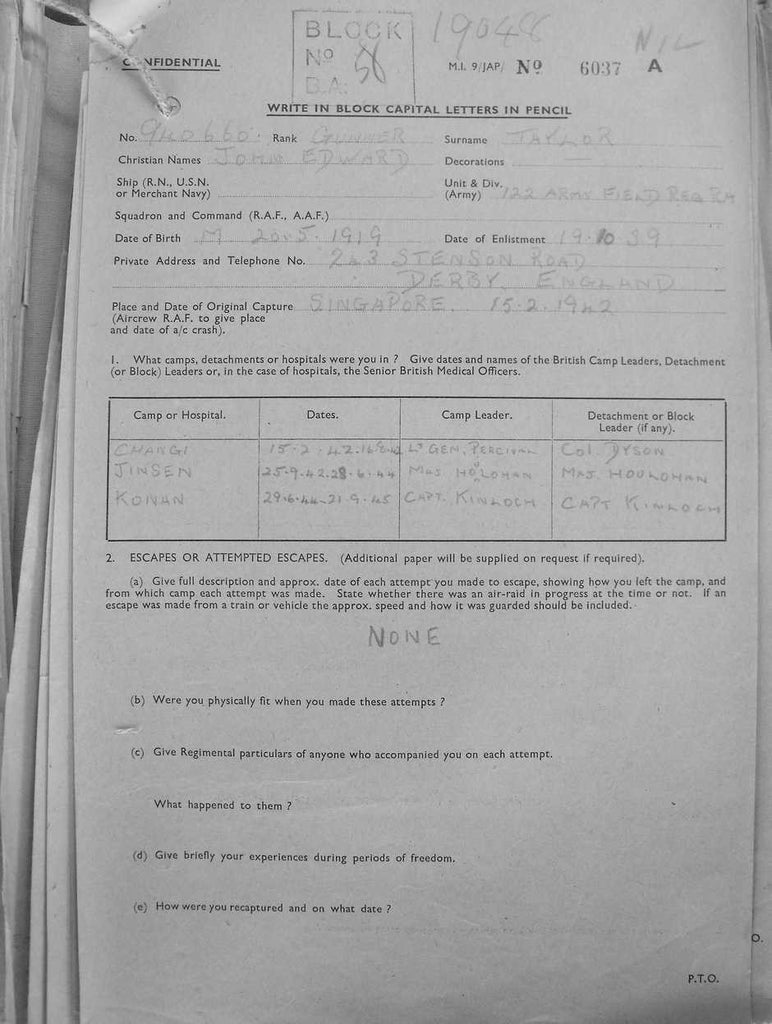 BLOCK
Nº 58
B.A.
19048
NIL
CONFIDENTIAL
M.I. 9/JAP/ Nº 6037 A
WRITE IN BLOCK CAPITAL LETTERS IN PENCIL
No. 940660 Rank GUNNER Surname TAYLOR
Christian Names JOHN EDWARD Decorations
Ship (R.N., U.S.N. or Merchant Navy) Unit & Div. (Army) 122 ARMY FIELD REG RA
Squadron and Command (R.A.F., A.A.F.)
Date of Birth 20.5.1919 Date of Enlistment 19.10.39
Private Address and Telephone No. 243 STENSON ROAD
DERBY. ENGLAND
Place and Date of Original Capture SINGAPORE. 15.2.1942
(Aircrew R.A.F. to give place
and date of a/c crash).
1. What camps, detachments or hospitals were you in ? Give dates and names of the British Camp Leaders, Detachment
(or Block) Leaders or, in the case of hospitals, the Senior British Medical Officers.
Camp or Hospital. Dates. Camp Leader. Detachment or Block Leader (if any).
CHANGI 15.2.42. LT GEN. PERCIVAL COL. DYSON
JINSEN 25.9.42.28.6.44 MAJ HOLOHAN MAJ. HOULOHAN
KONAN 29.6.44.21.9.45 CAPT. KINLOCH CAPT KINLOCH
2. ESCAPES OR ATTEMPTED ESCAPES. (Additional paper will be supplied on request if required).
(a) Give full description and approx. date of each attempt you made to escape, showing how you left the camp, and
from which camp each attempt was made. State whether there was an air-raid in progress at the time or not. If an
escape was made from a train or vehicle the approx. speed and how it was guarded should be included.
NONE
(b) Were you physically fit when you made these attempts ?
(c) Give Regimental particulars of anyone who accompanied you on each attempt.
What happened to them ?
(d) Give briefly your experiences during periods of freedom.
(e) How were you recaptured and on what date ?
O.
P.T.O.